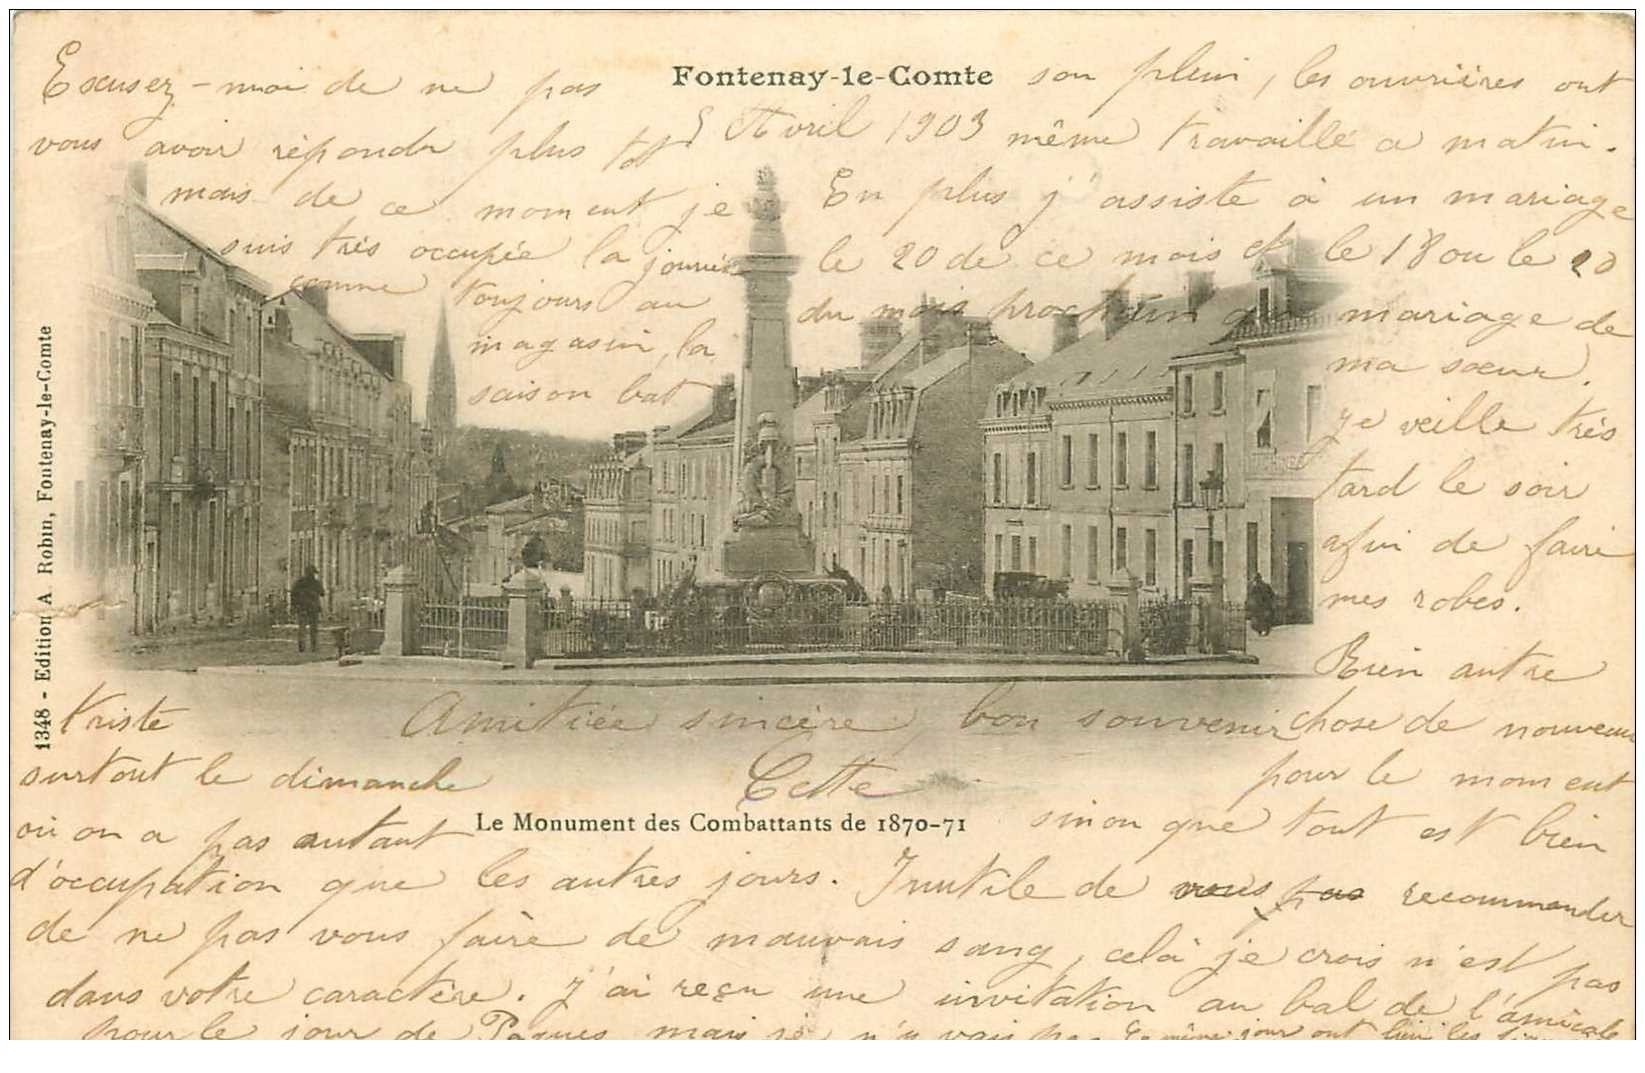 Fontenay-le-Comte
5 Avril 1903
Excusez-moi de ne pas
vous avoir répondu plus tôt
mais de ce moment je
suis très occupée la journée
comme toujours au
magasin, la
saison bat
son plein, les ouvrières ont
même travaillé a matin.
En plus j'assiste à un mariage
le 20 de ce mois et le 18 ou le 20
du mois prochain au mariage de
ma sœur.
Je veille très
tard le soir
afin de faire
mes robes.
Rien autre
chose de nouveau
pour le moment
sinon que tout est bien
triste
surtout le dimanche
où on a pas autant
d'occupation que les autres jours. Inutile de vous pas recommander
de ne pas vous faire de mauvais sang, celà je crois n'est pas
dans votre caractère. J'ai reçu une invitation au bal de l'amicale
pour le jour de Pâques mais je n'y vais pas Ce même jour ont lieu les
Amitiée sincère, bon souvenir
Cette
Le Monument des Combattants de 1870-71
1348 - Edition A Robin, Fontenay-le-Comte